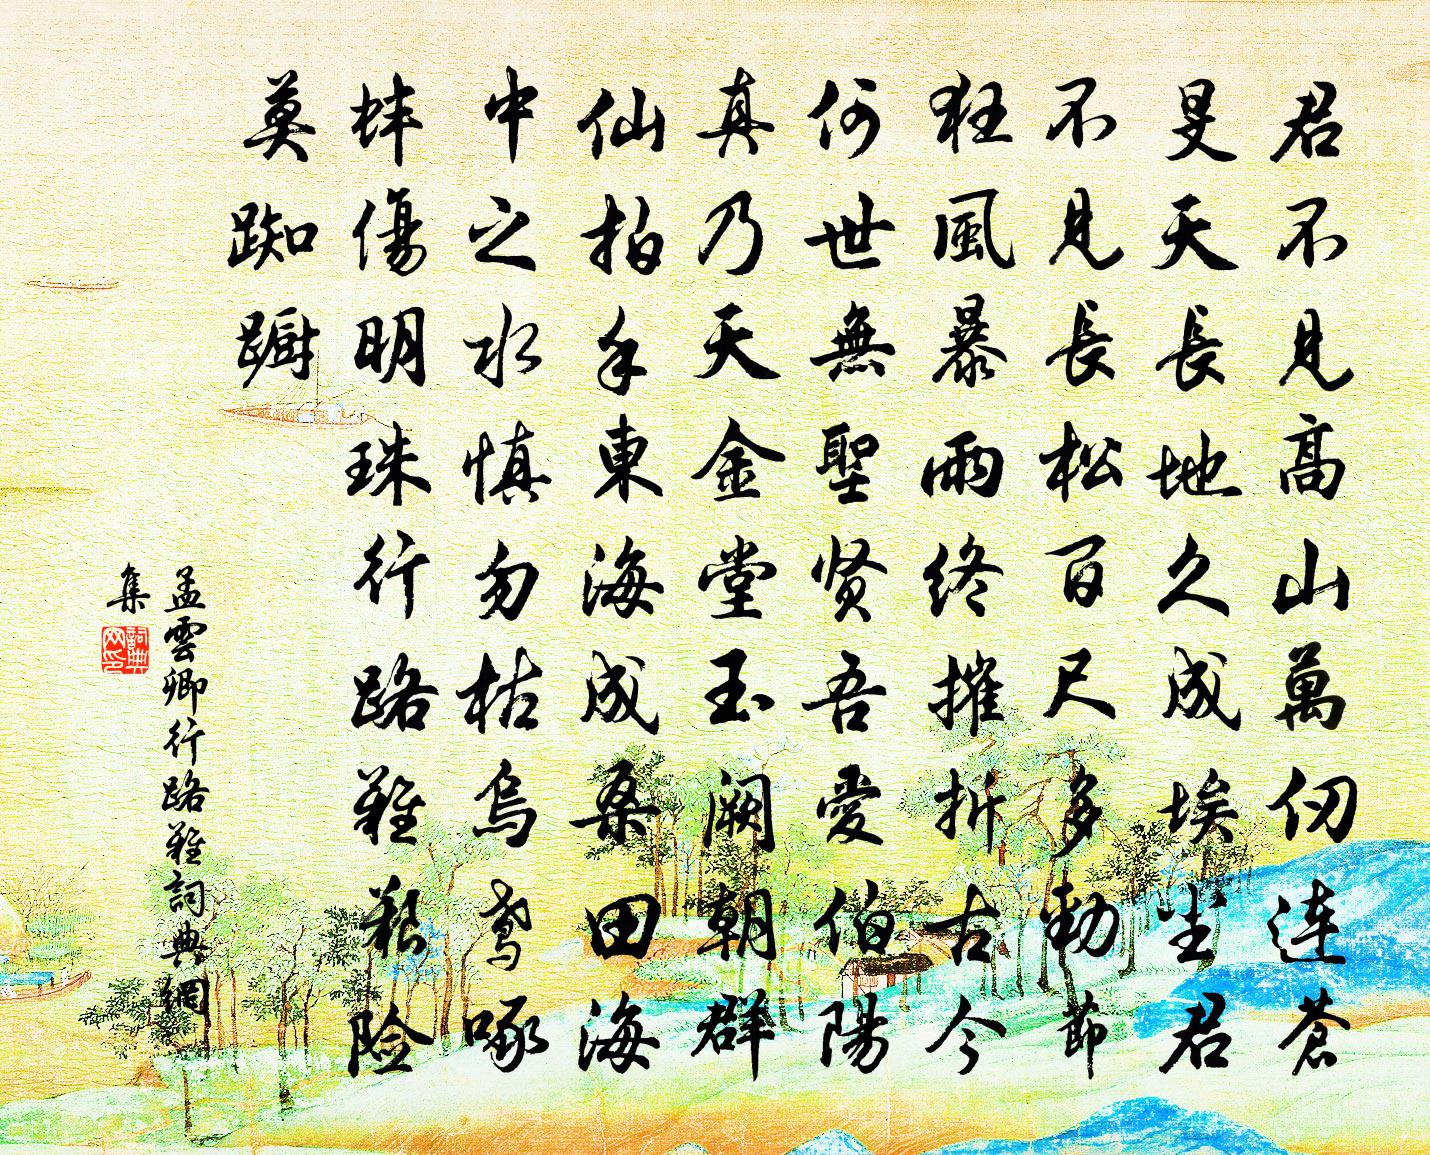 君不見高山萬仞连蒼
旻天長地久成埃尘君
不見長松百尺多勁節
狂風暴雨终摧折古今
何世無聖贤吾愛伯陽
真乃天金堂玉阙朝群
仙拍手東海成桑田海
中之水慎勿枯烏鸢啄
蚌傷明珠行路難艱险
莫踟蹰
孟雲卿行路難詞典網
集
詞典网印